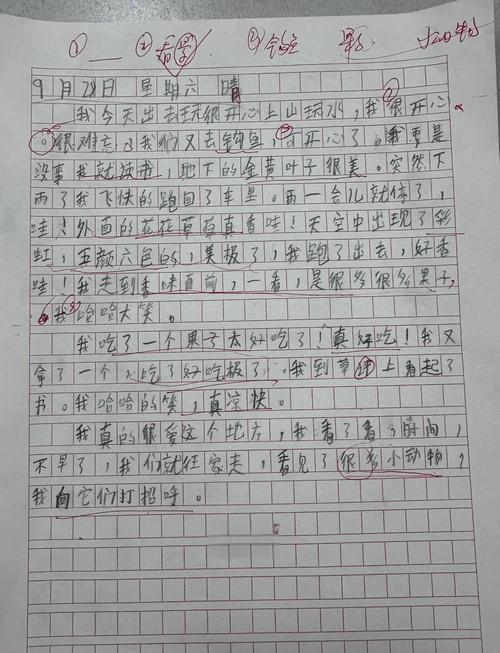 9月28日 星期六 晴
我今天出去玩很开心上山玩水,我很开心
。很难忘,我们又去钓鱼,可开心了。我要是
没事我就读书,地下的金黄叶子很美。突然下
雨了我飞快的跑回了车里。雨一会儿就停了,
哇!外面的花花草草真香哇!天空中出现了彩
虹,五颜六色的,美极了,我跑了出去,好香
哇!我走到香味直前,一看,是很多很多果子,
我哈哈大笑。
我吃了一个果子太好吃了!真好吃!我又
拿了一个,吃了好吃极了。我到草 上看起了
书。我哈哈的笑,真凉快。
我真的很爱这个地方,我看了看,时间,
不早了,我们就往家走,看见了很多小动物,
我向它们打招呼。